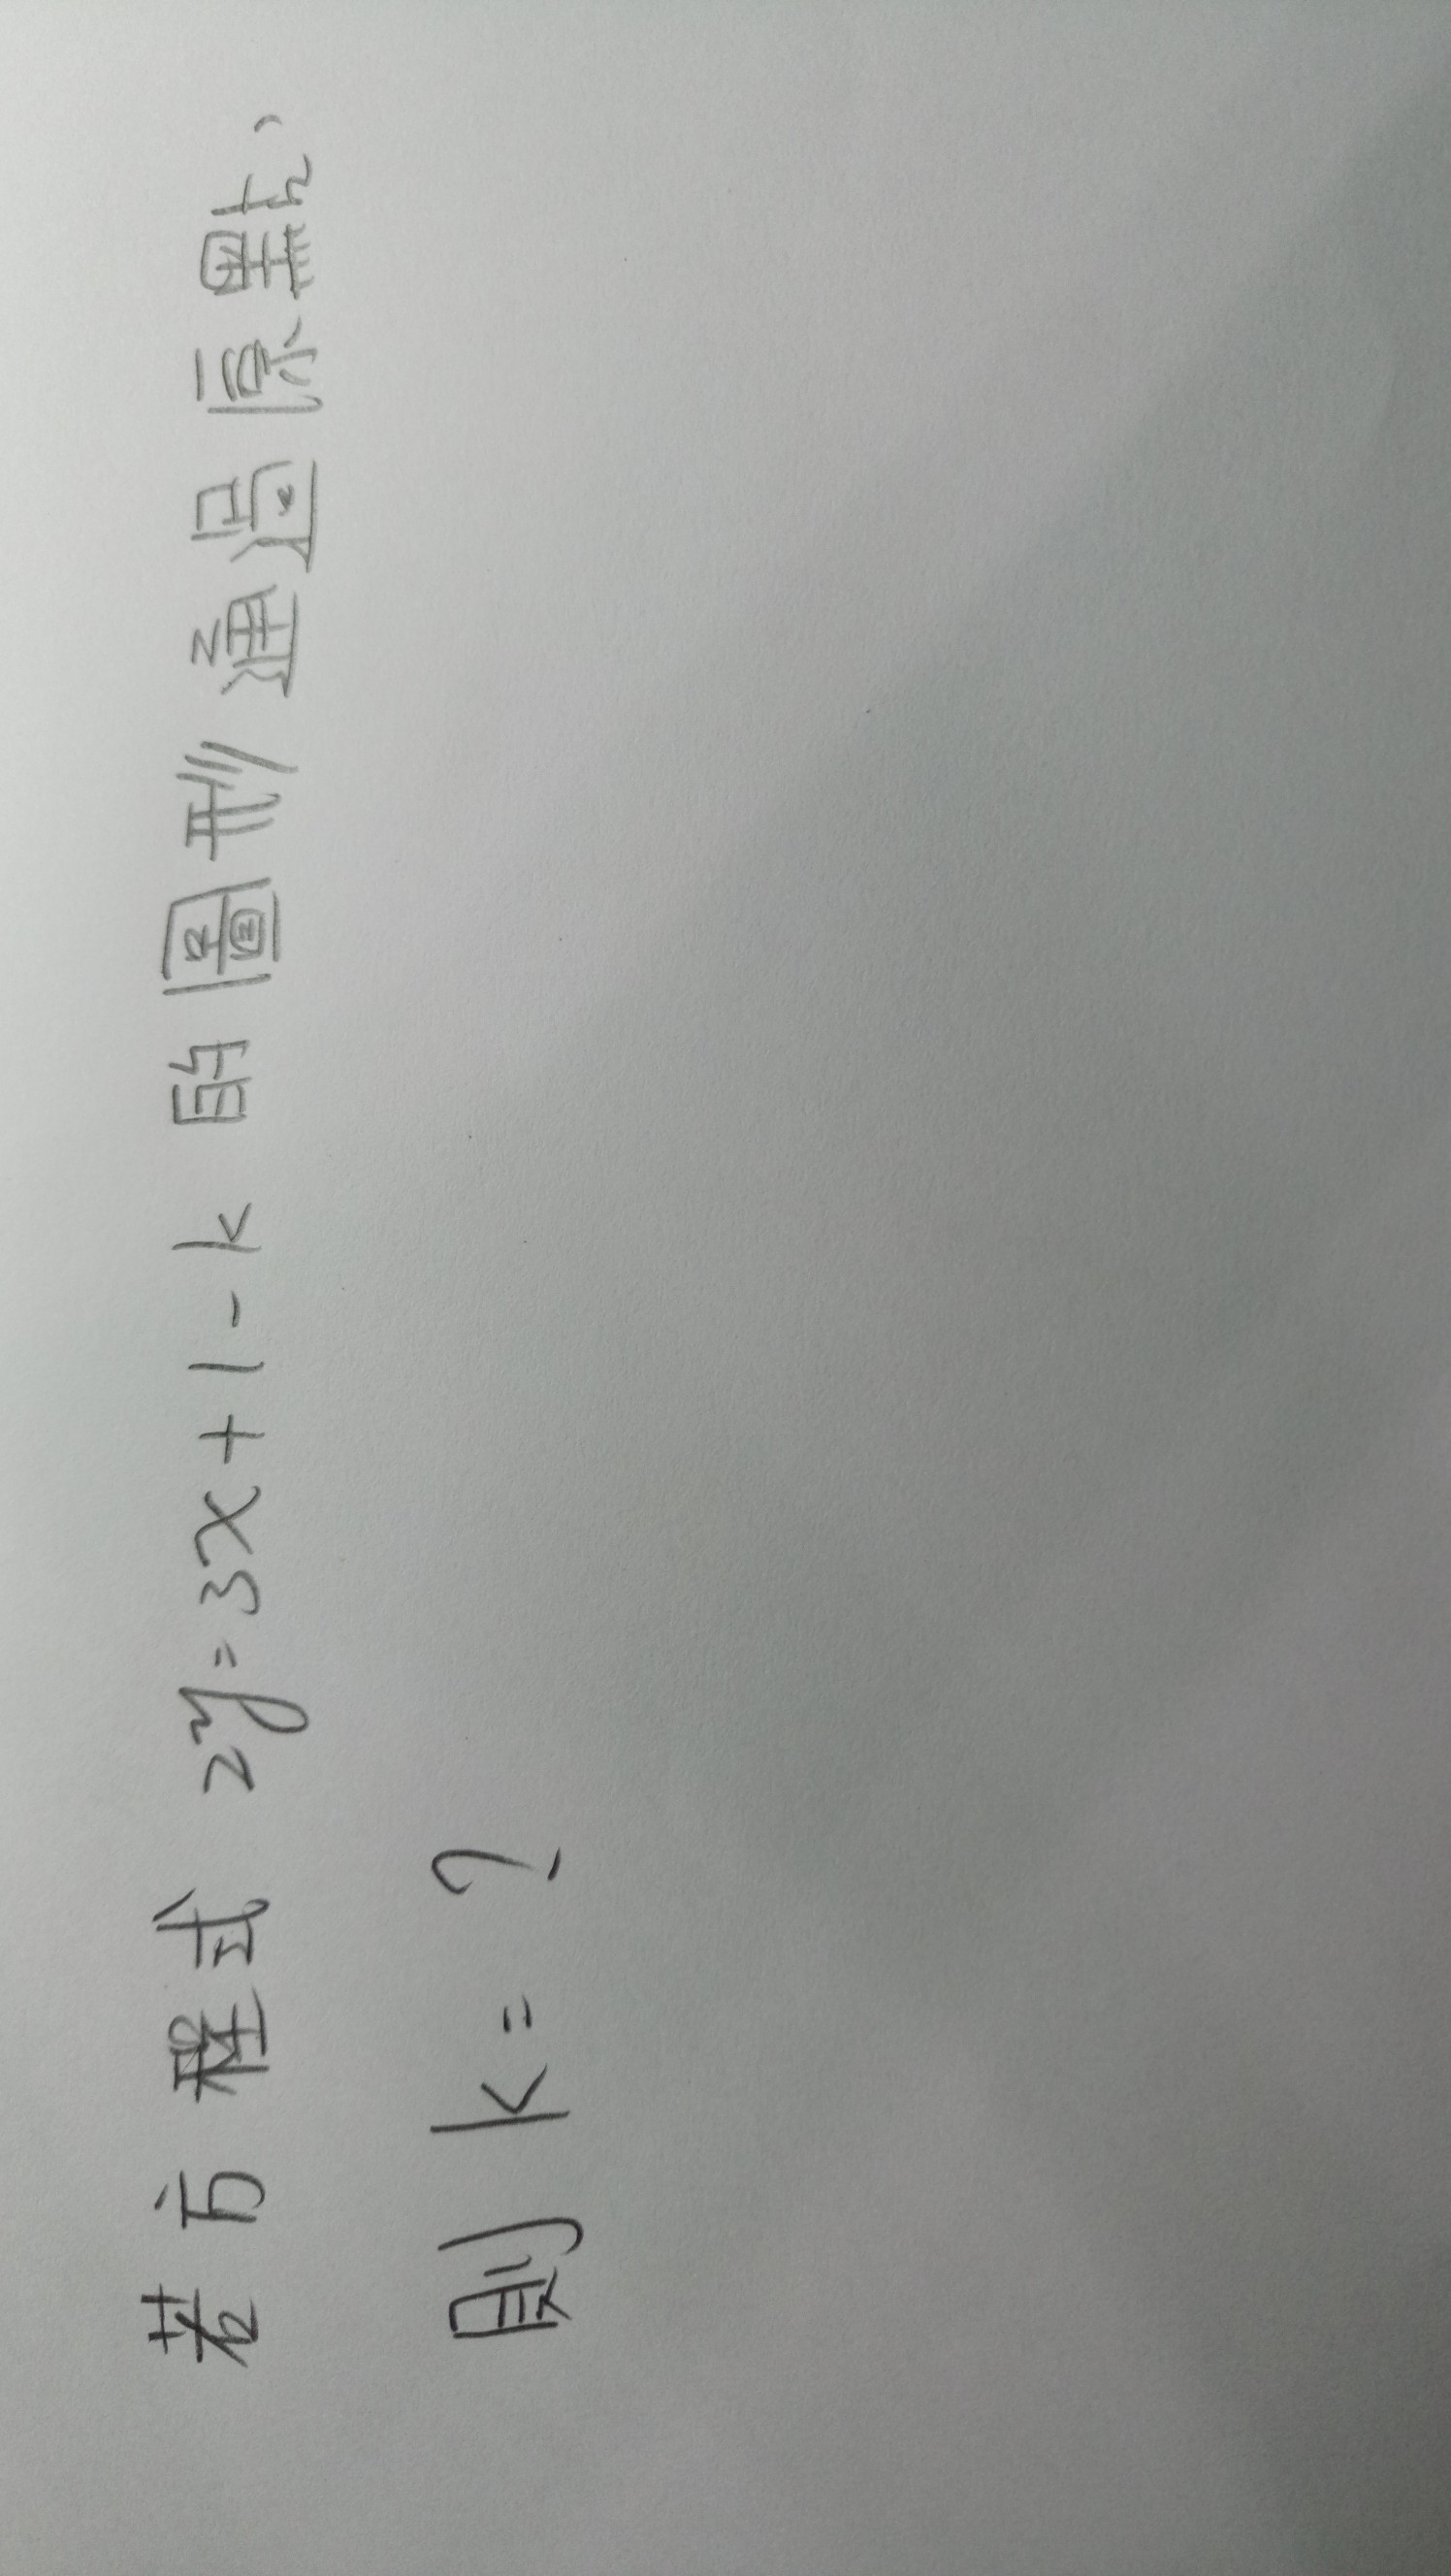 若方程式 2y=3x+1-k 的圖形通過原點，
則 k= ?